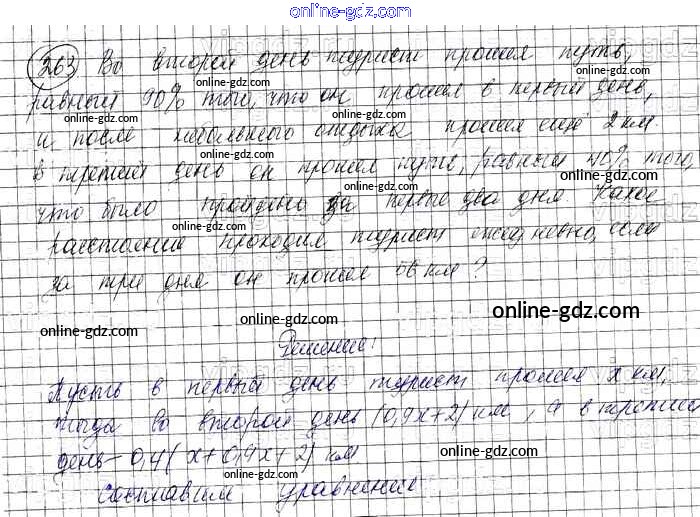 online-gdz.com
263 Во второй день турист прошел путь,
равный 90% того, что он прошел в первый день,
и после небольшого отдыха прошел ещё 2 км.
в третий день он прошел путь, равный 40% того,
что было пройдено за первые два дня. Какое
расстояние проходил турист ежедневно, если
за три дня он прошел 56 км?
Решение:
Пусть в первый день турист прошел x км,
тогда во второй день (0,9x+2) км, а в третий
день - 0,4(x+0,9x+2) км
составим уравнение
online-gdz.com
online-gdz.com
online-gdz.com
online-gdz.com
online-gdz.com
online-gdz.com
online-gdz.com
online-gdz.com
online-gdz.com
online-gdz.com
online-gdz.com
online-gdz.com
online-gdz.com